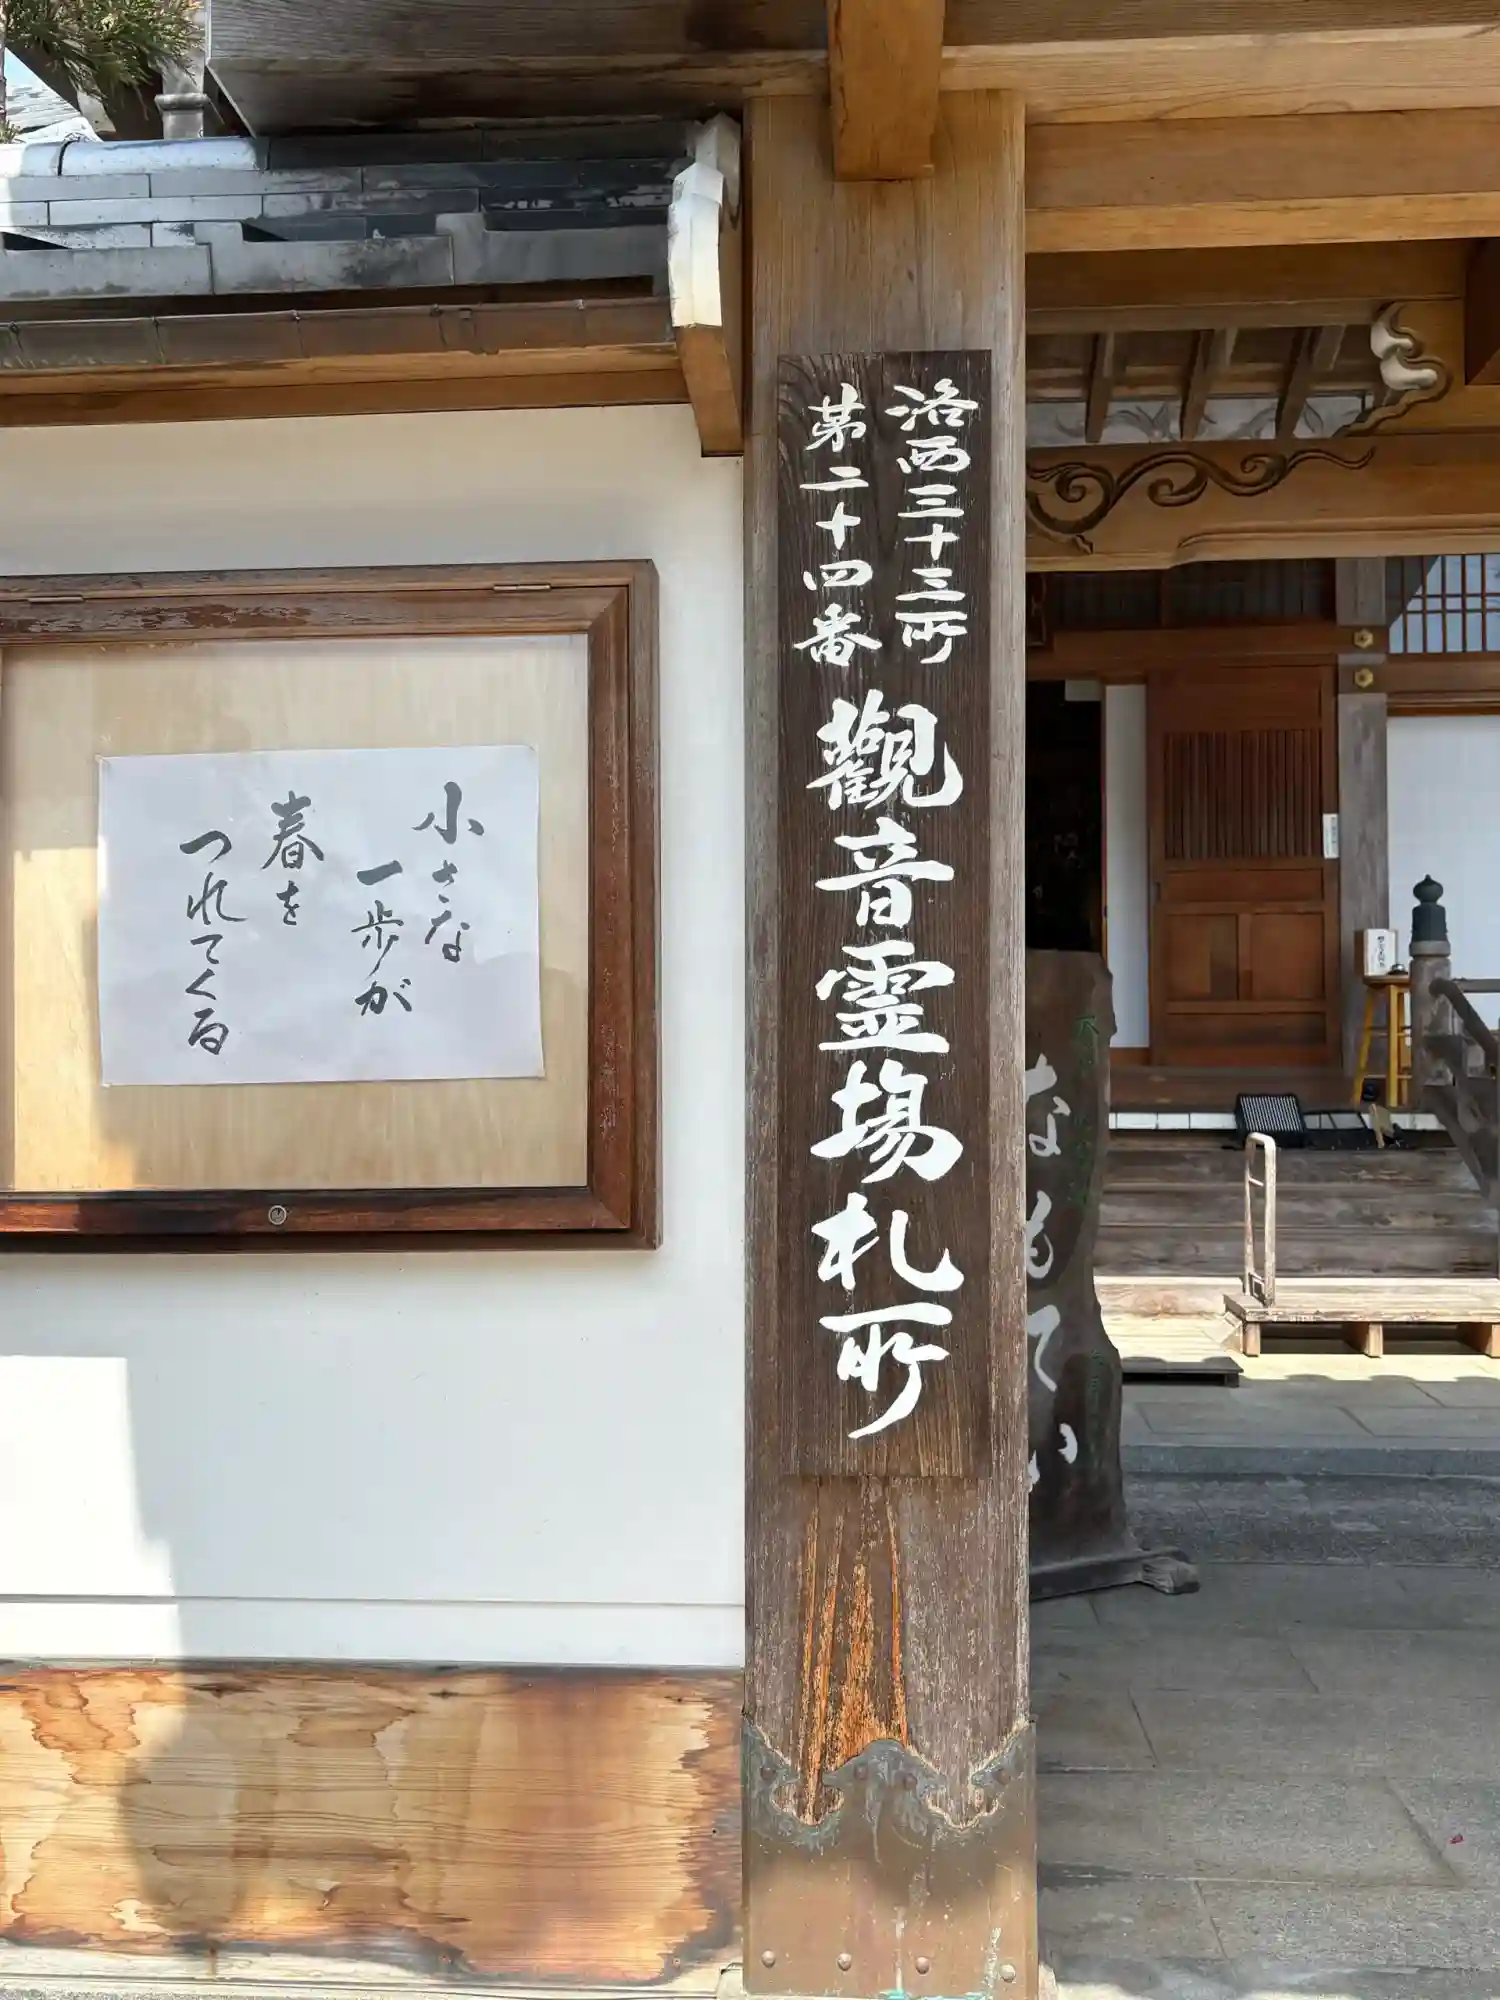 洛西三十三所
第二十四番
觀音霊場札所
小さな
一歩が
春を
つれてくる
なもてか